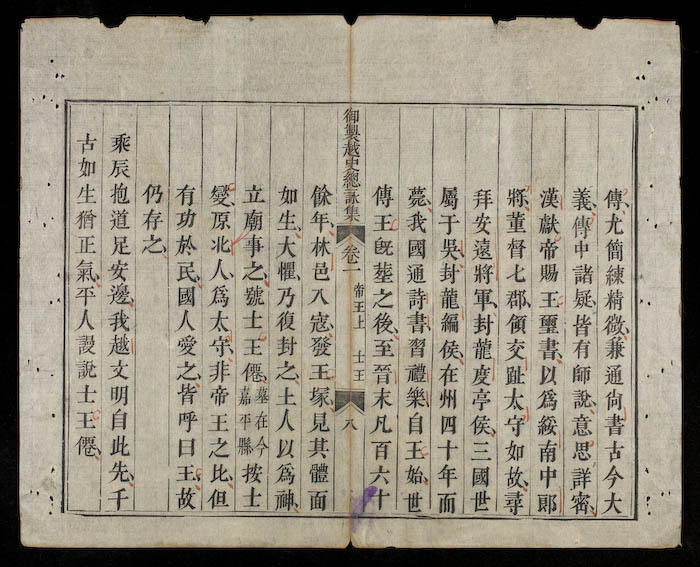 傳尤簡練精微兼通尚書古今大
義傳中諸疑皆有師說意思詳密
漢獻帝賜王璽書以爲綏南中郎
將董督七郡領交趾太守如故尋
拜安遠將軍封龍度亭侯三國世
屬于吳封龍編侯在州四十年而
薨我國通詩書習禮樂自王始世
傳王旣塟之後至晉末凡百六十
御製越史總詠集 卷一 帝王上 士王 八
餘年林邑入寇發王塚見其體面
如生大懼乃復封之土人以爲神
立廟事之號士王僊墓在今嘉平縣按士
燮原北人爲太守非帝王之比但
有功於民國人愛之皆呼曰王故
仍存之
乘辰抱道足安邊我越文明自此先千
古如生猶正氣平人謾說士王僊